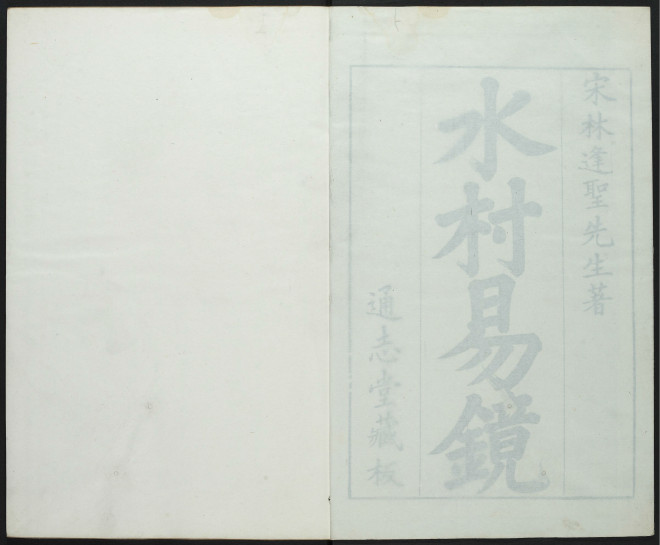 宋林逢聖先生著
水村易鏡
通志堂藏板